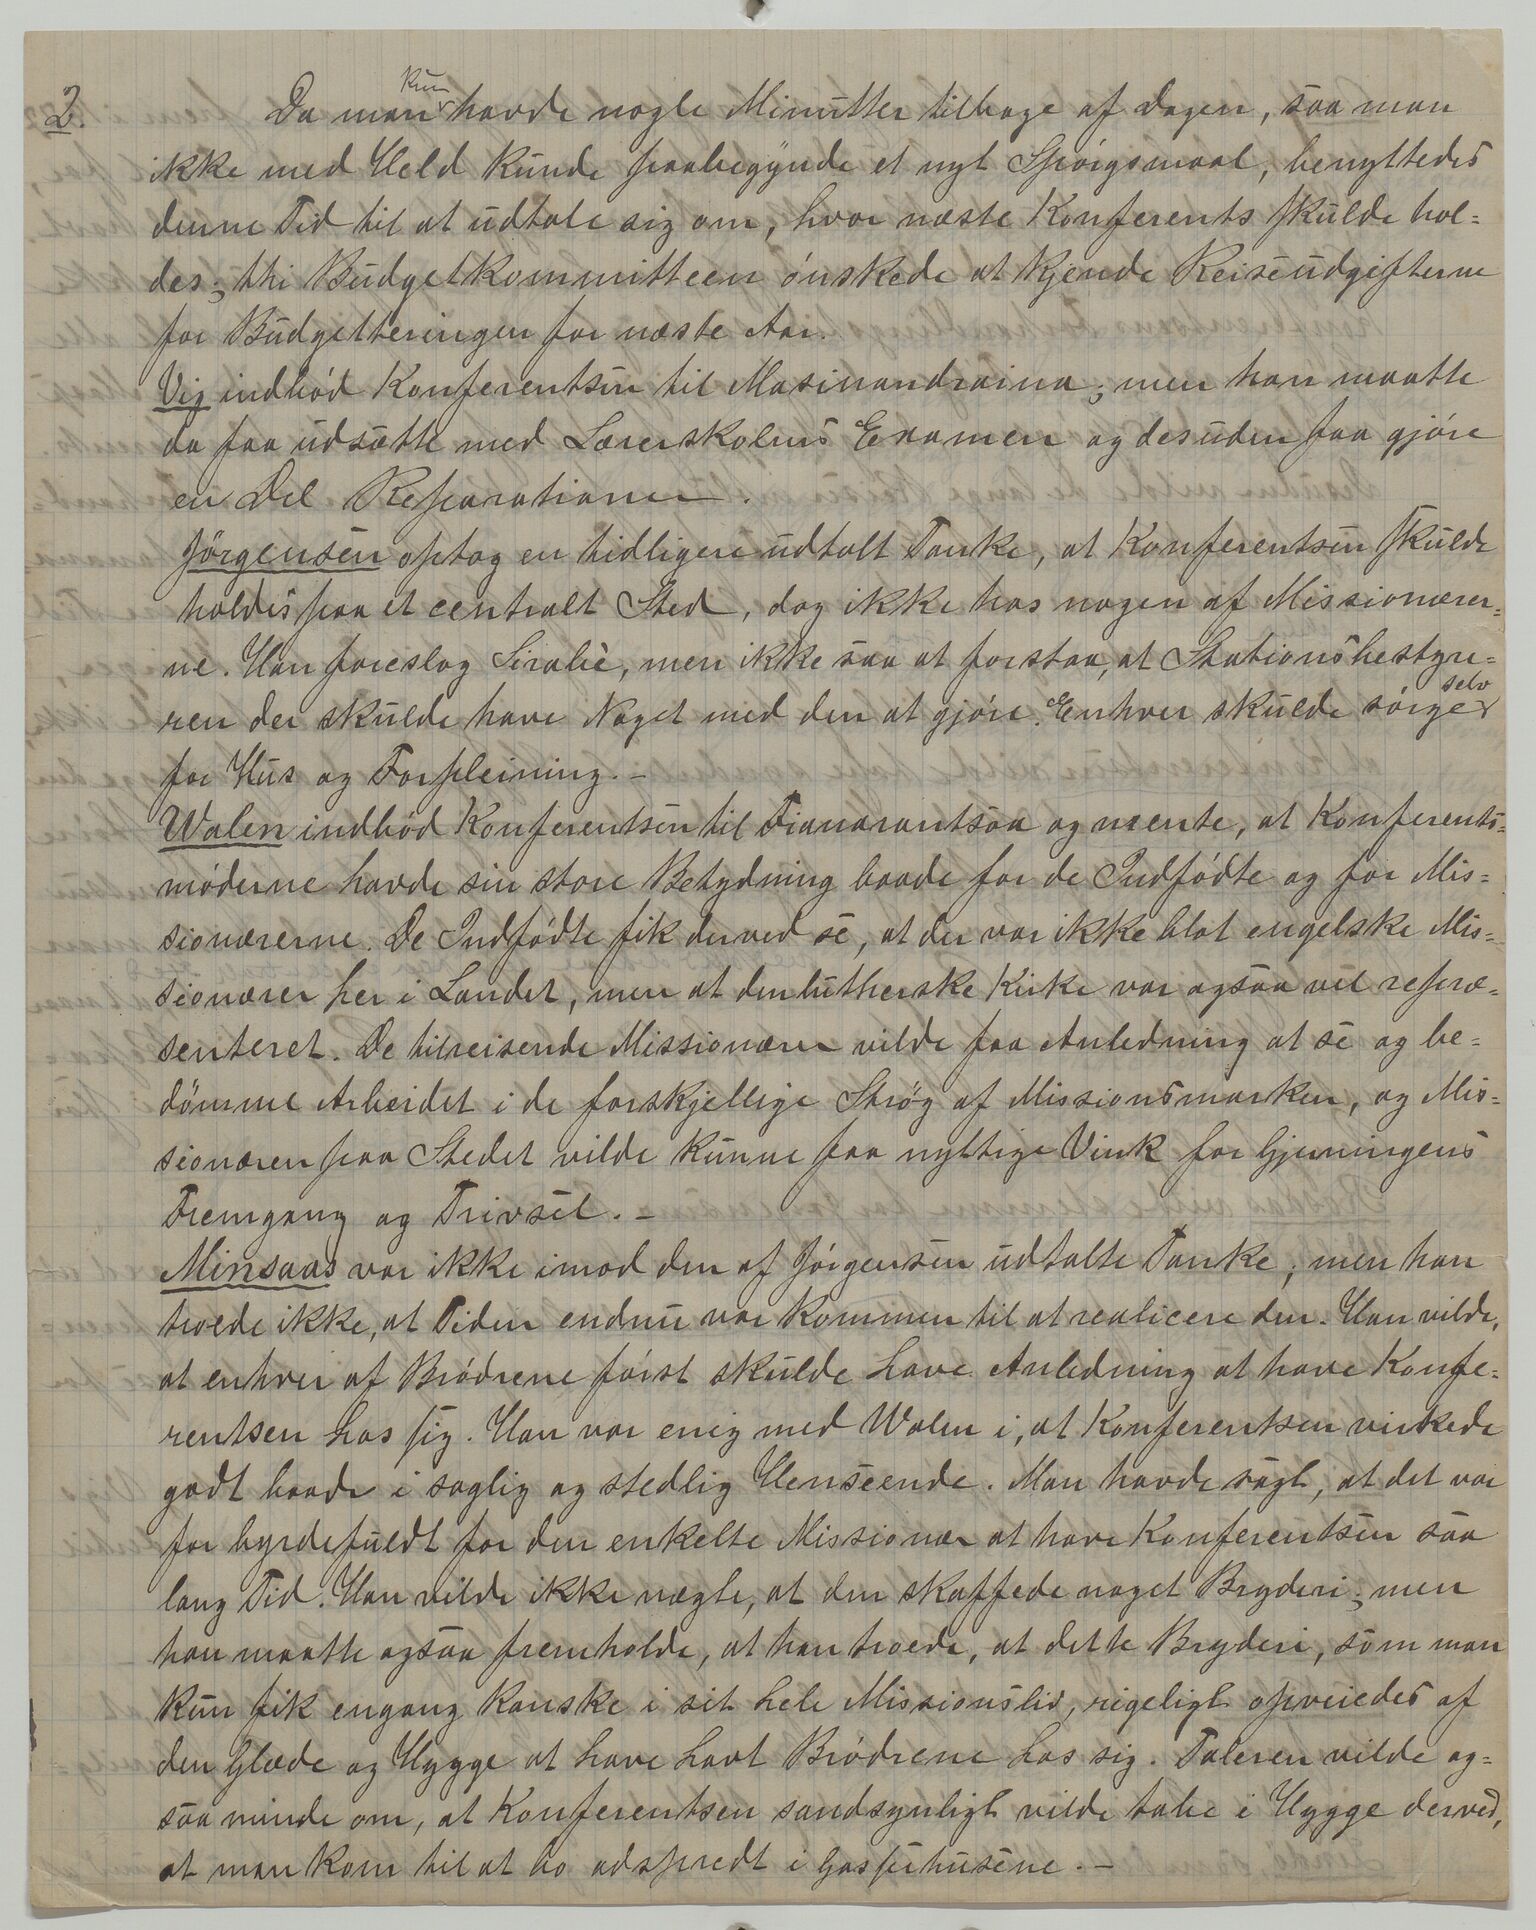 2. Da man kun havde nogle Minutter tilbage af Dagen, saa man
ikke med Held kunde paabegynde et nyt Spørgsmaal, benyttedes
denne Tid til at udtale sig om, hvor næste Konferents skulde hol-
des; thi Budgetkommitteen ønskede at kjende Reiseudgifterne
for Budgetteringen for næste Aar.
Vig indbød Konferentsen til Masinandraina; men han maatte
da faa udsætte med Lærerskolens Examen og desuden faa gjøre
en Del Reparationer.
Jørgensen optog en tidligere udtalt Tanke, at Konferentsen skulde
holdes paa et centralt Sted, dog ikke hos nogen af Missionærer-
ne. Han foreslog Sirabè, men ikke saa at forstaa, at Stationsbestyre-
ren der skulde have Noget med den at gjøre. Enhver skulde sørge selv
for Hus og Forpleining. –
Walen indbød Konferentsen til Fianarantsoa og mente, at Konferents-
møderne havde sin store Betydning baade for de Indfødte og for Mis-
sionærerne. De Indfødte fik derved se, at der var ikke blot engelske Mis-
sionærer her i Landet, men at den lutherske Kirke var ogsaa vel repræ-
senteret. De tilreisende Missionærer vilde faa Anledning at se og be-
dømme Arbeidet i de forskjellige Strøg af Missionsmarken, og Mis-
sionæren paa Stedet vilde kunne faa nyttige Vink for Gjerningens
Fremgang og Trivsel. –
Minsaas var ikke imod den af Jørgensen udtalte Tanke; men han
troede ikke, at Tiden endnu var kommen til at realicere den. Han vilde,
at enhver af Brødrene først skulde have Anledning at have Konfe-
rentsen hos sig. Han var enig med Walen i, at Konferentsen virkede
godt baade i saglig og stedlig Henseende. Man havde sagt, at det var
for byrdefuldt for den enkelte Missionær at have Konferentsen saa
lang Tid. Han vilde ikke nægte, at den skaffede noget Bryderi; men
han maatte ogsaa fremholde, at han troede, at dette Bryderi, som man
kun fik engang kanske i sit hele Missionsliv, rigeligt opveiedes af
den Glæde og Hygge at have havt Brødrene hos sig. Taleren vilde og-
saa minde om, at Konferentsen sandsynligt vilde tabe i Hygge derved,
at man kom til at bo adspredt i Gasserhusene. –